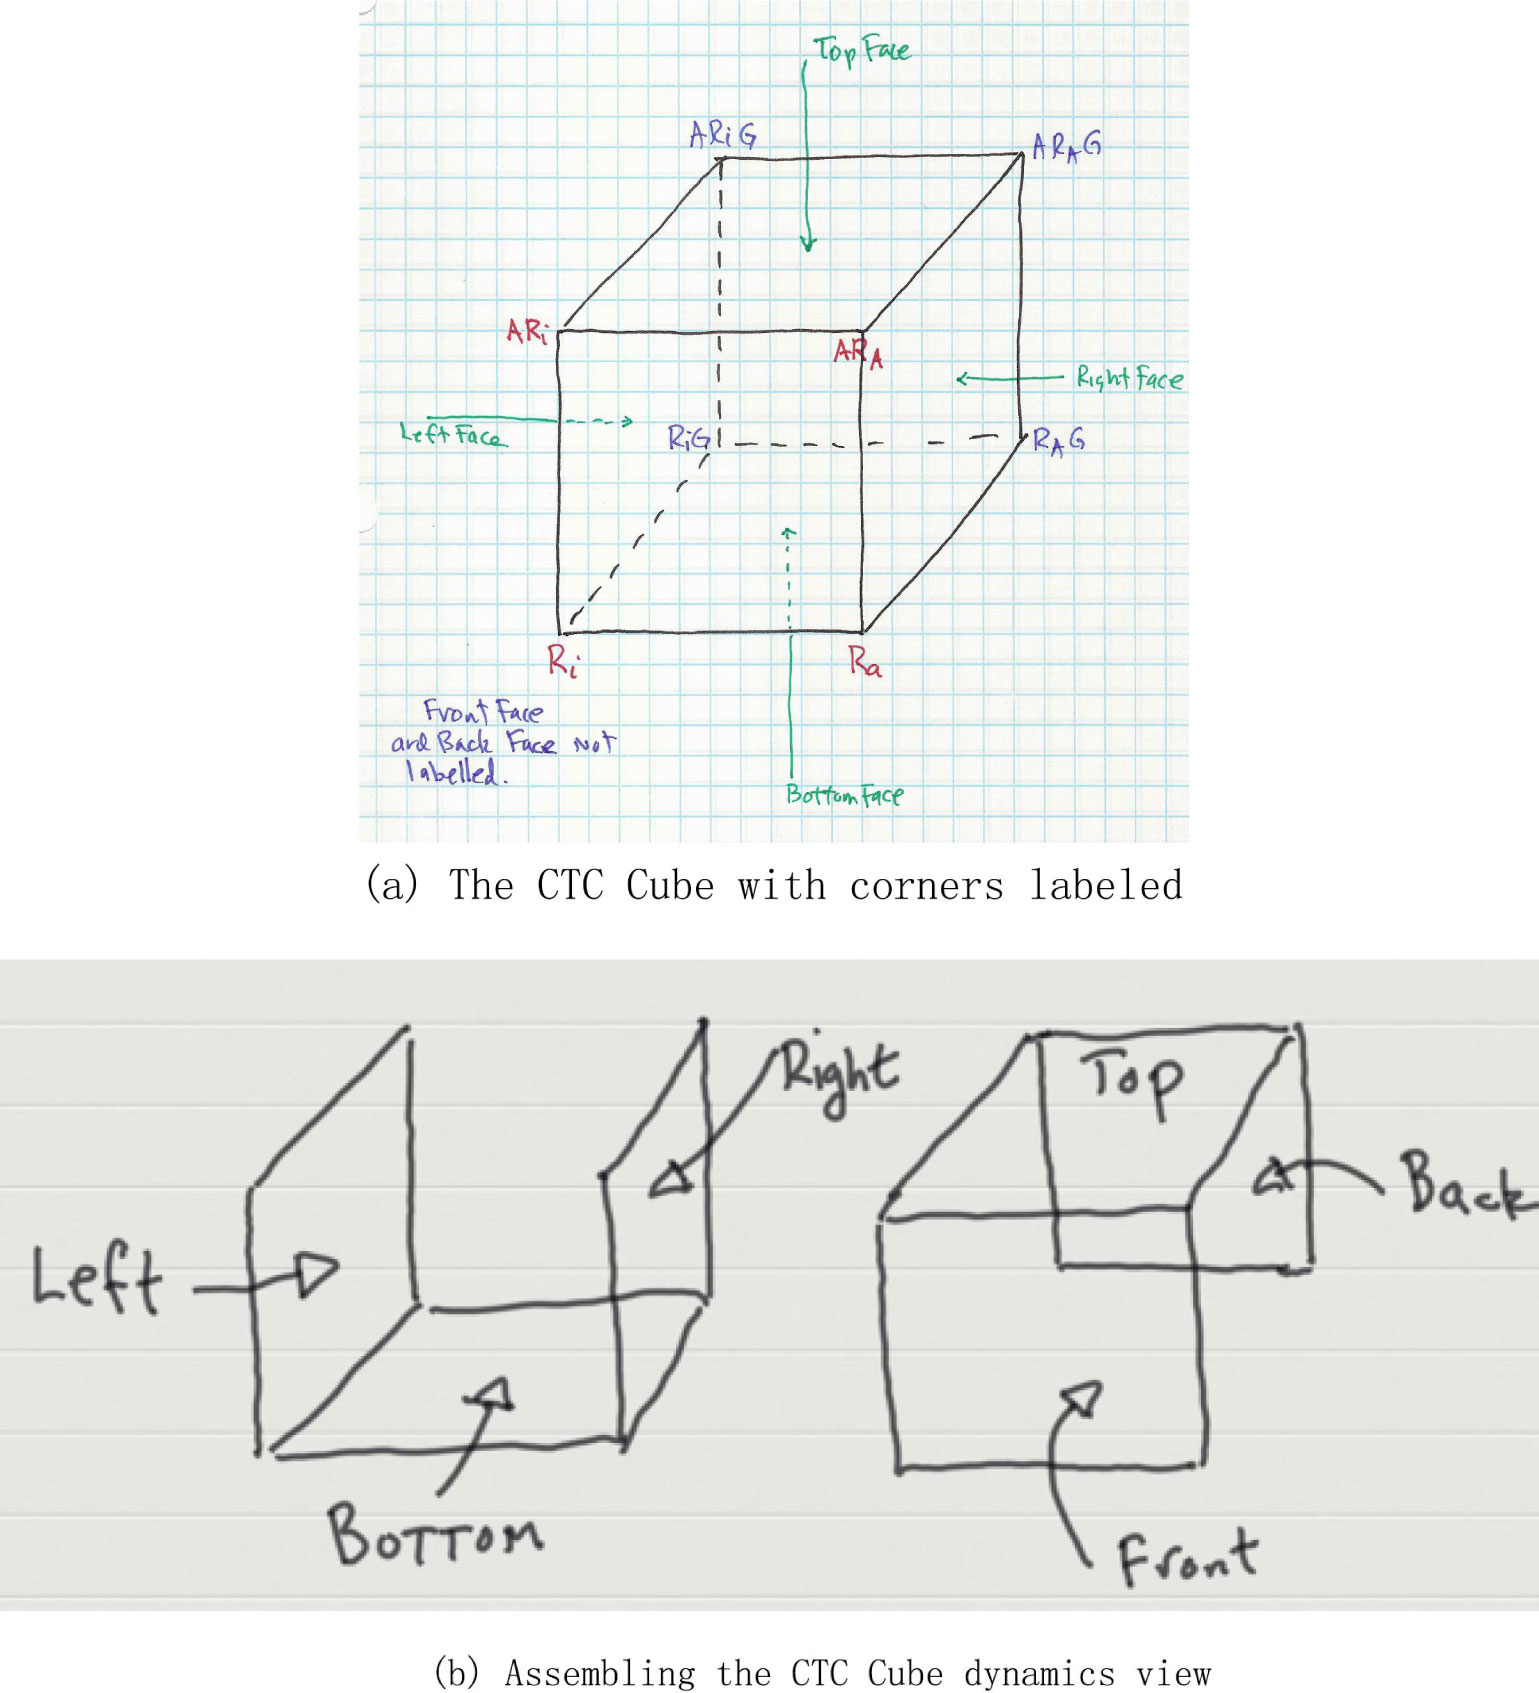 Top Face
ARiG
ARAG
ARi
ARA
Right Face
Left Face
RiG
RAG
Ri
Ra
Front Face
and Back Face Not
labelled.
Bottom Face
(a) The CTC Cube with corners labeled
Right
Top
Back
Left
BOTTOM
Front
(b) Assembling the CTC Cube dynamics view